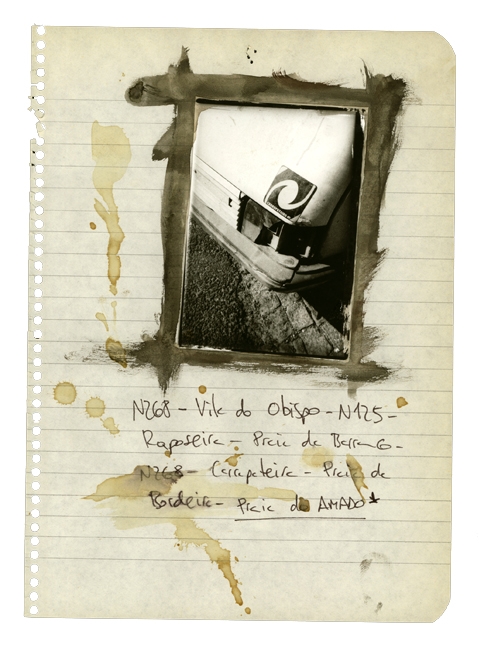 N268 - Vila do Obispo - N125 -
Raposeira - Praia da Barranco -
N268 - Carrapateira - Praia da
Bordeira - Praia do AMADO *